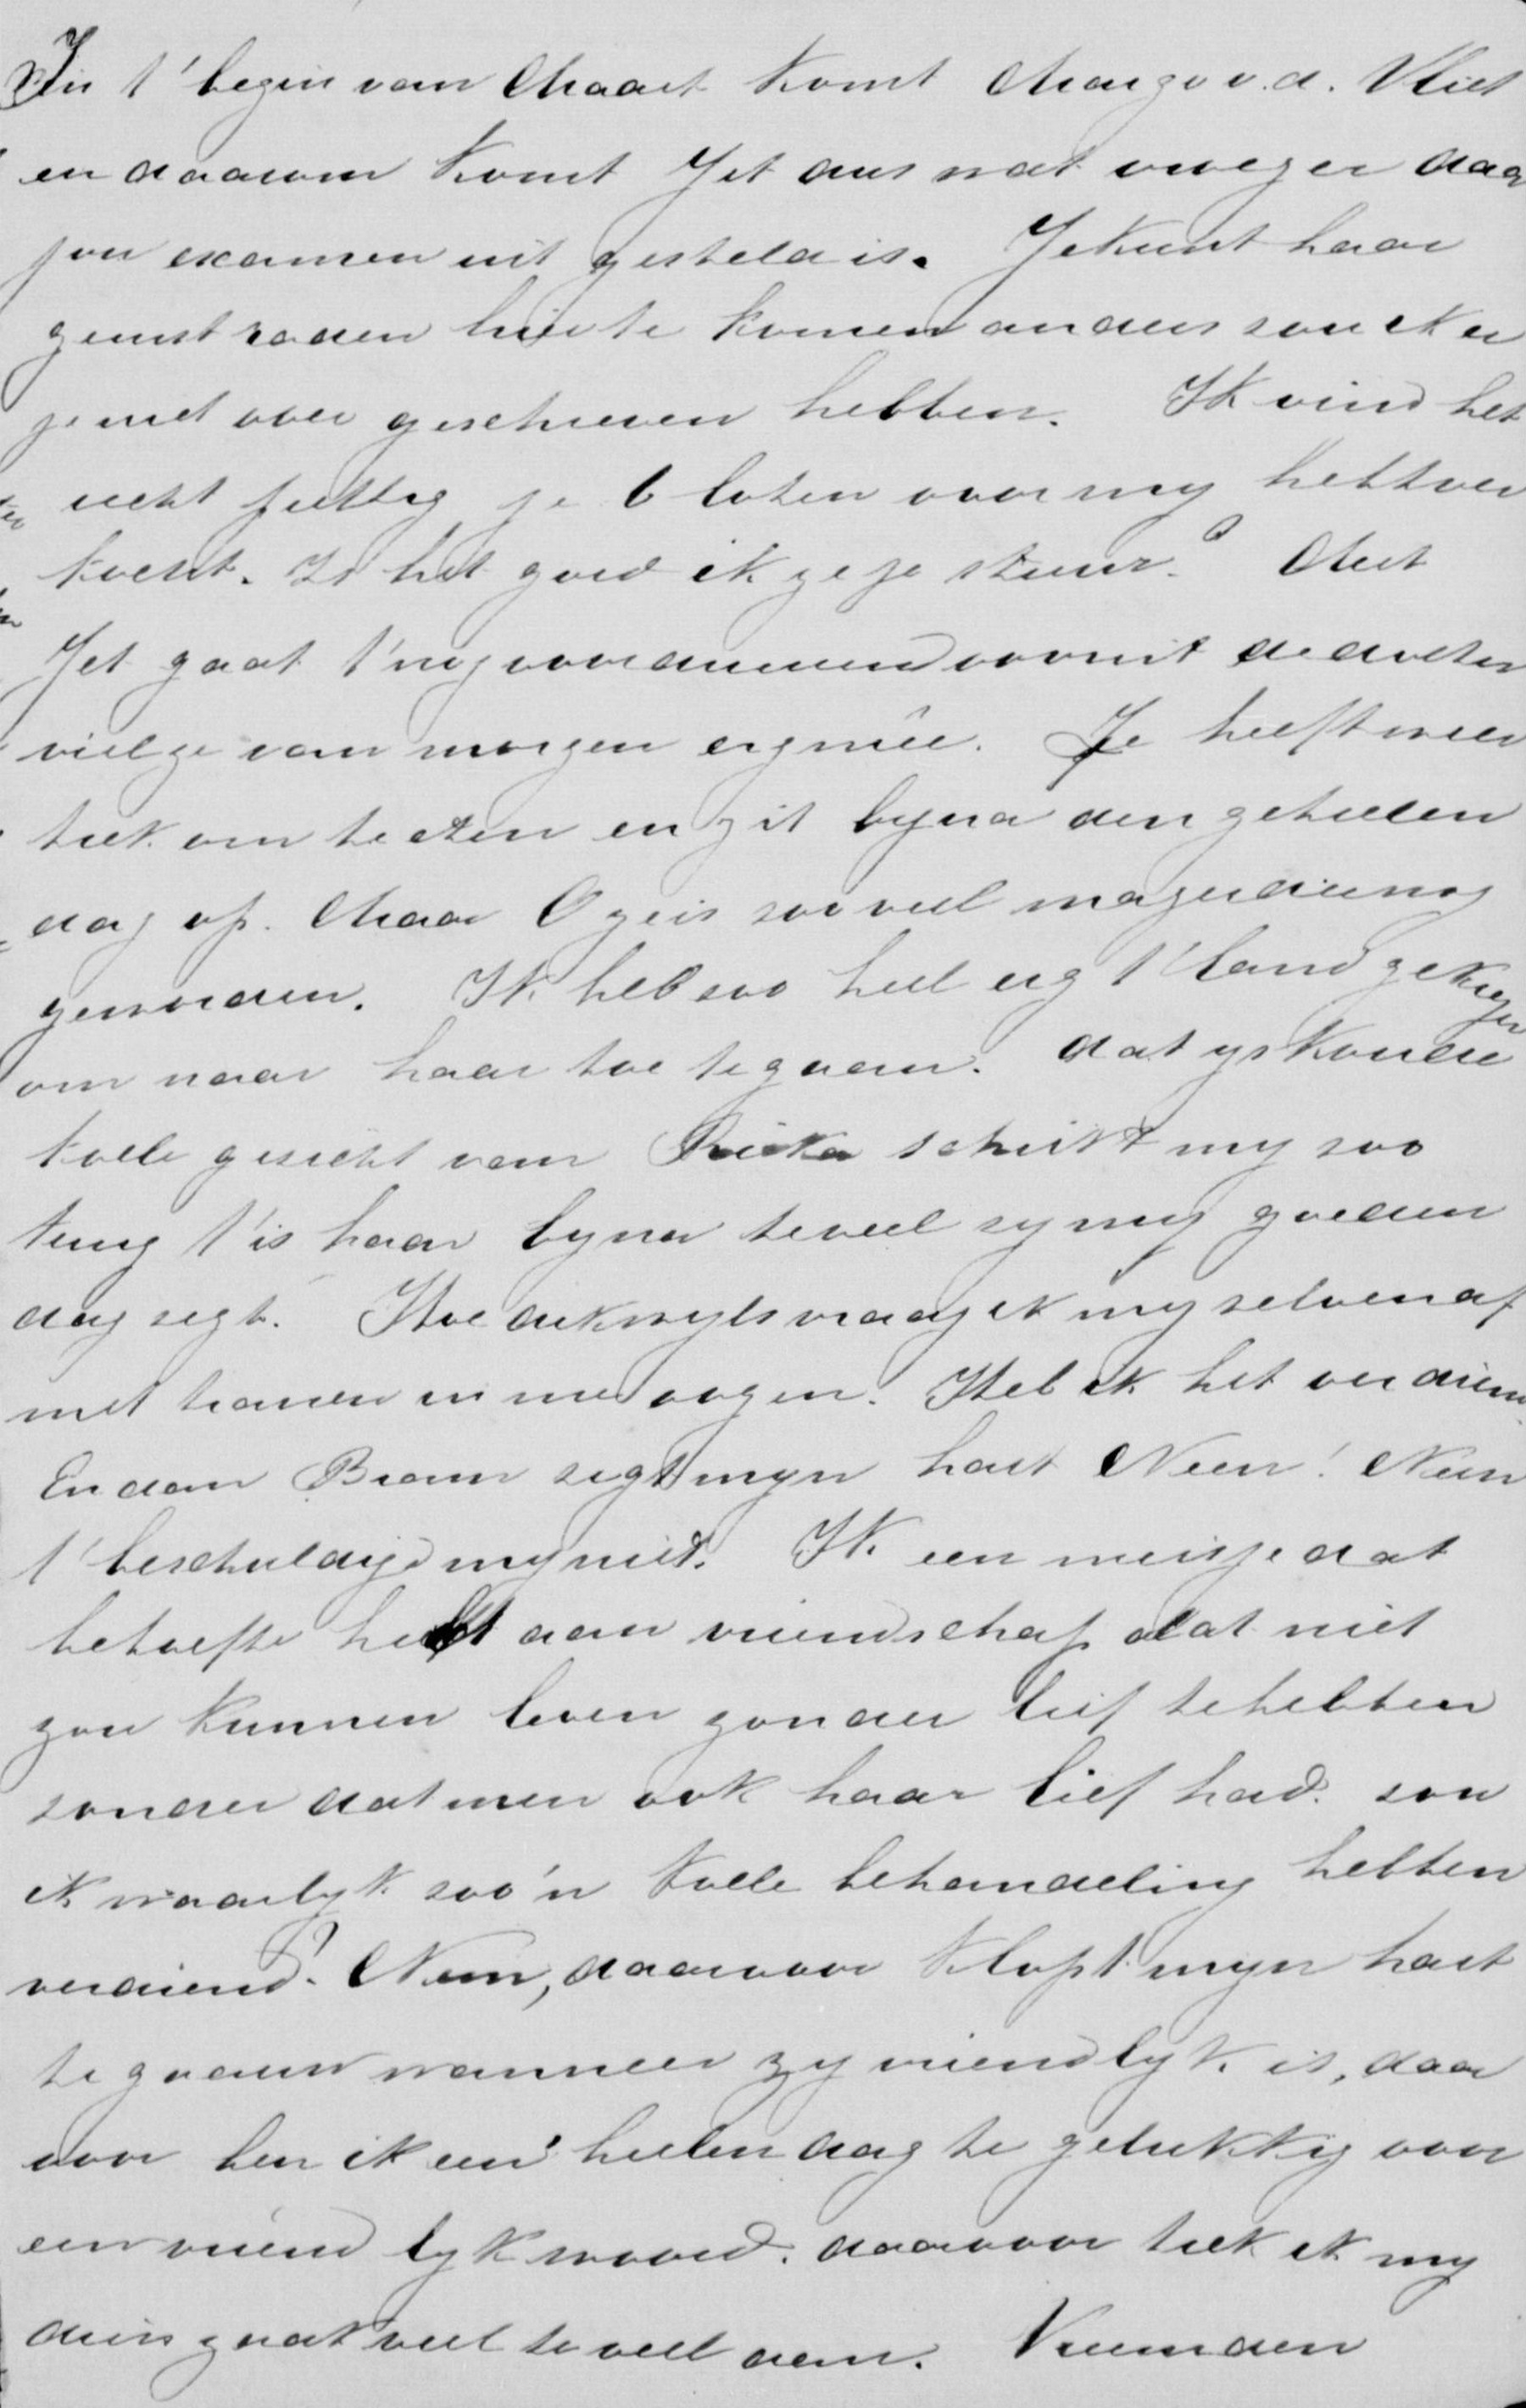 In t'begin van Maart komt Margo v.d. Vliet
en daarom komt Jet dus wat vroeger daar
jou examen uit gesteld is. Je kunt haar
gerust raden hier te komen anders zou ik er
je niet over geschreven hebben. Ik vind het
echt prettig je 6 loten voor my hebt ver
kocht. Is het goed ik ze je stuur? Met
Jet gaat t'nog voordurend vooruit de dokter
viel ze van morgen erg mêe. Ze heeft weer
trek om te eten en zit byna den geheelen
dag op. Maar O ze is zoo veel magerder nog
geworden. Ik heb zoo heel erg t'land gekregen
om naar haar toe te gaan. dat yskoude
koele gezicht van Rika schrikt my zoo
terug t'is haar byna te veel zy my goeden
dag zegt. Hoe dikwyls vraag ik myselven af
met tranen in me oogen. Heb ik het verdiend
En dan Bram zegt myn hart Neen! Neen
t'beschuldigd my niet. Ik een meisje dat
behoefte heeft aan vriendschap dat niet
zou kunnen leven zonder lief te hebben
zonder dat men ook haar lief had. zou
ik waarlyk zoo'n koele behandeling hebben
verdiend? Neen, daarvoor klopt myn hart
te gaauw wanneer zy vriendlyk is, daar
voor ben ik een heelen dag te gelukkig voor
een vriendlyk woord. daarvoor trek ik my
alles veel te veel aan. Vreemden